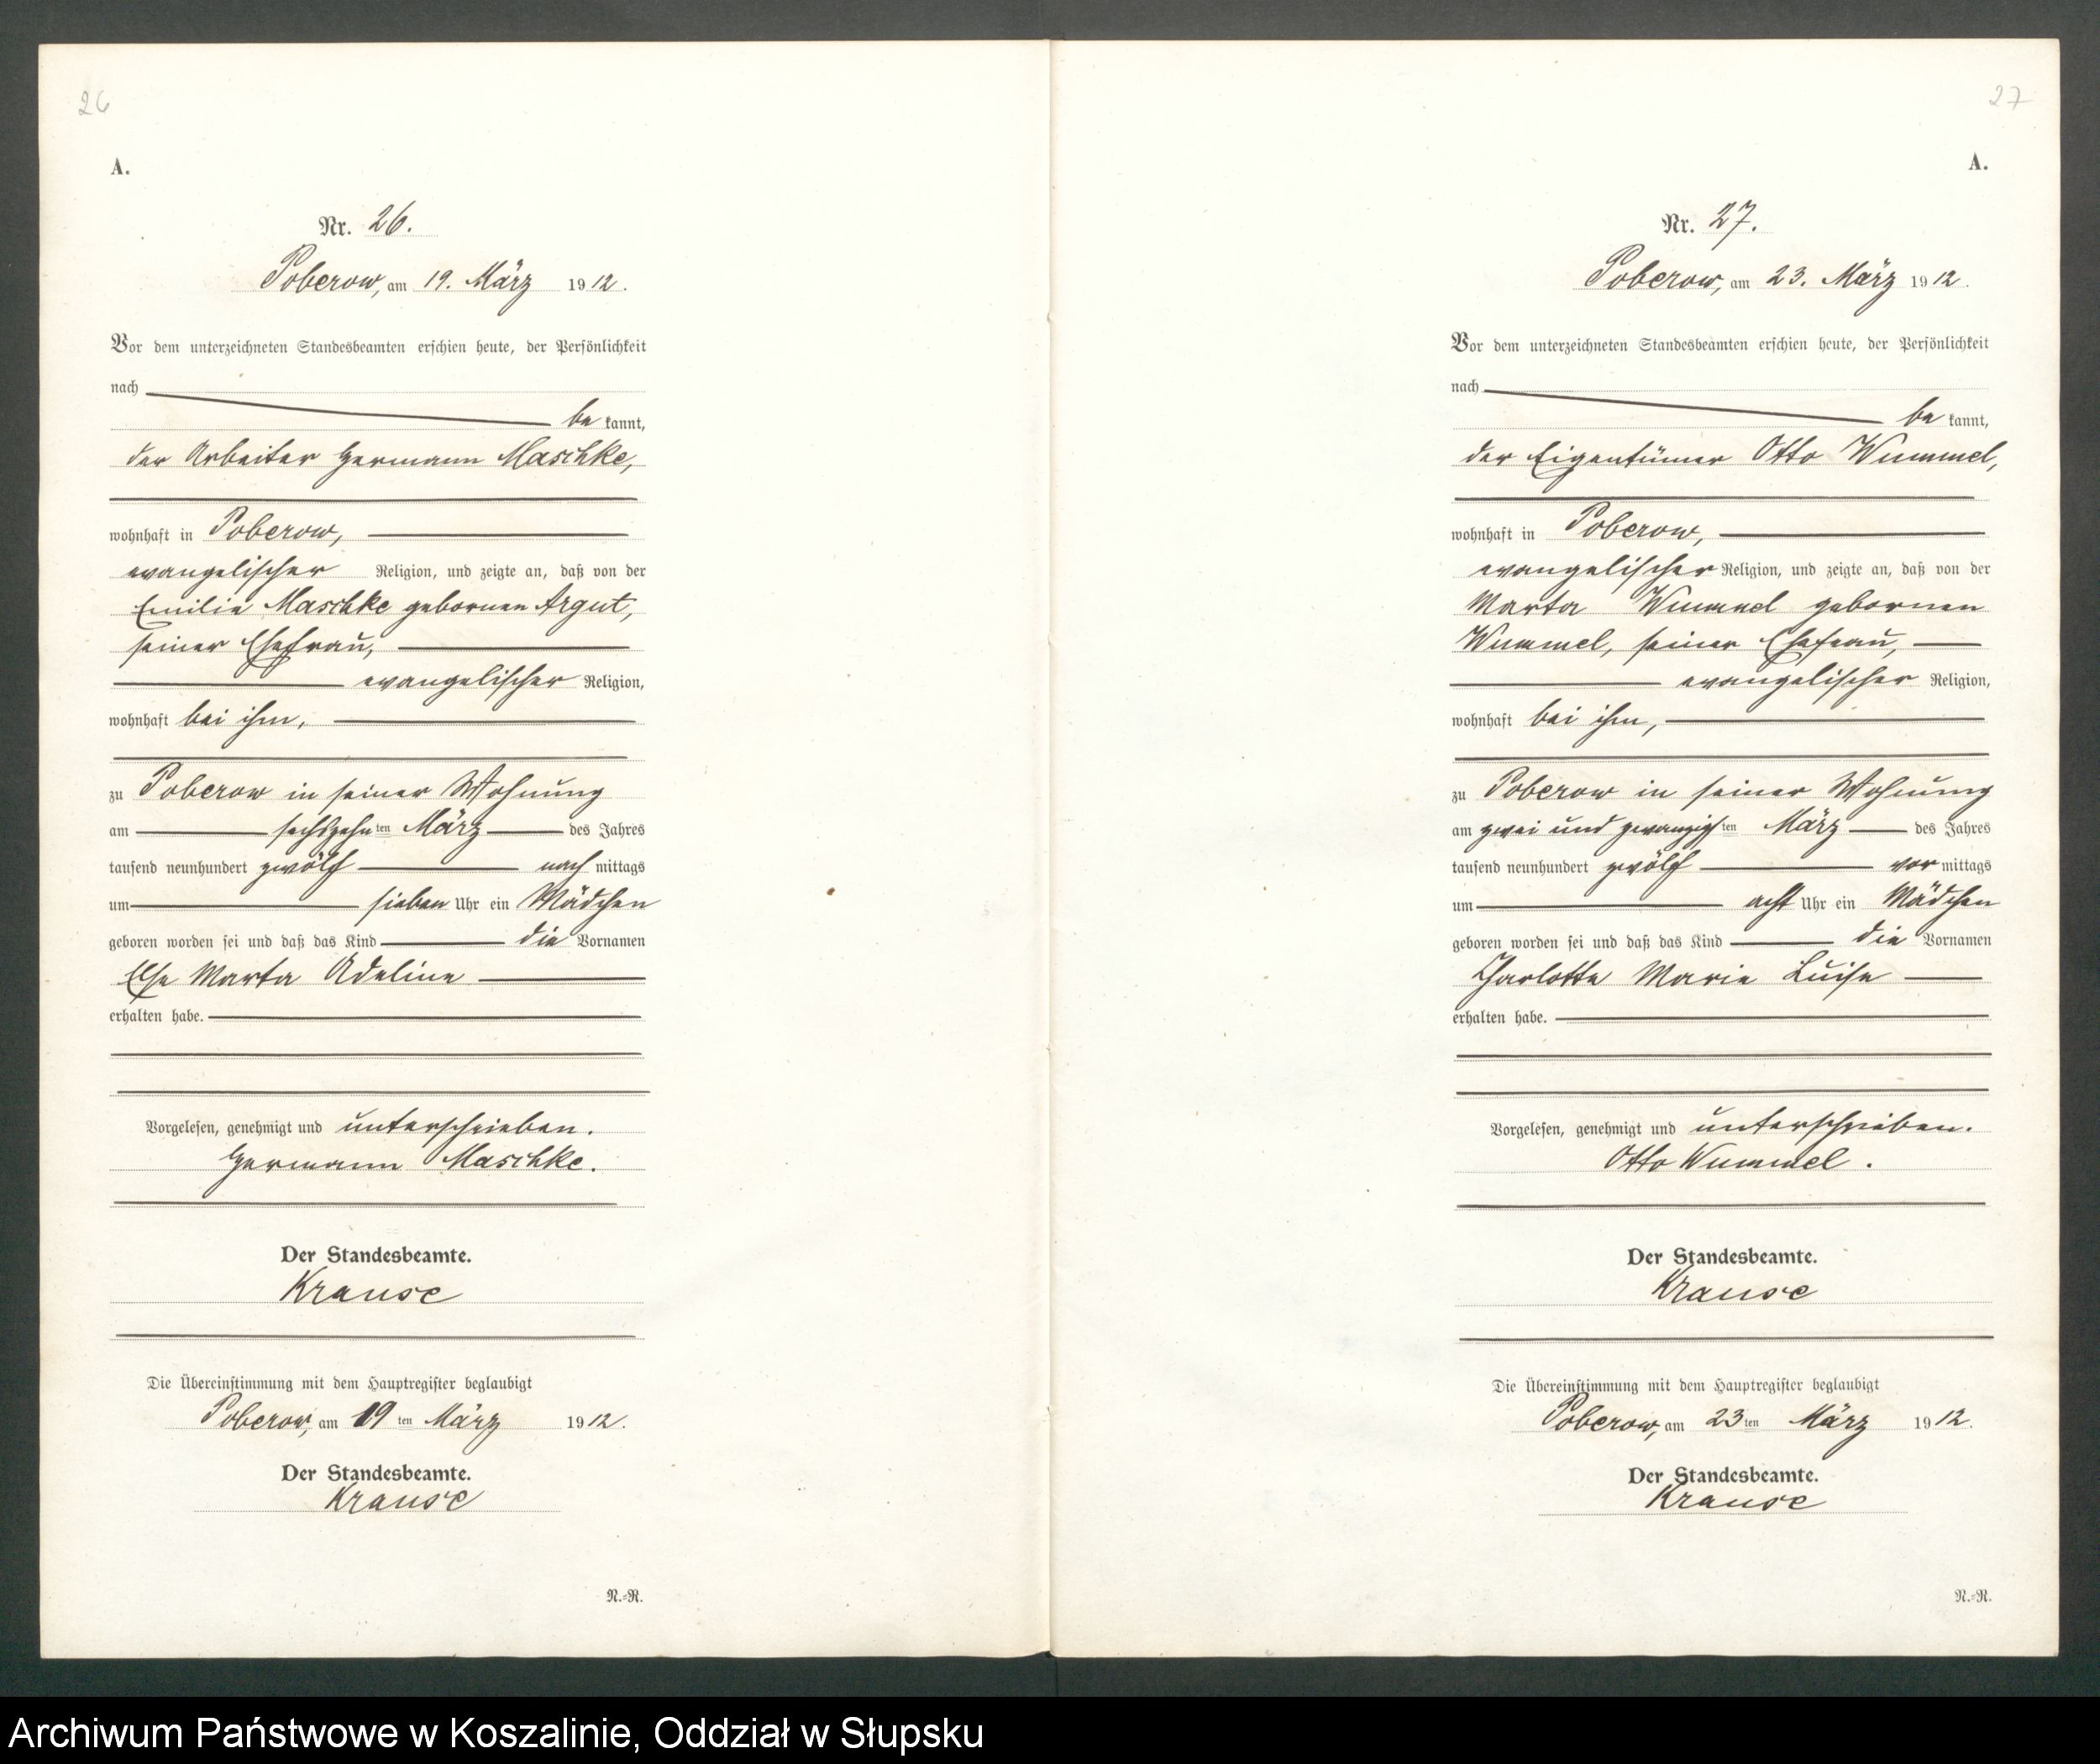 26
A.
Nr. 26.
Poberow, am 19. März 1912.
Vor dem unterzeichneten Standesbeamten erschien heute, der Persönlichkeit
nach
be kannt,
der Arbeiter Hermann Maschke,
wohnhaft in Poberow,
evangelischer Religion, und zeigte an, daß von der
Emilie Maschke gebornen Argut,
seiner Ehefrau,
evangelischer Religion,
wohnhaft bei ihm,
zu Poberow in seiner Wohnung
am sechszehnten März des Jahres
tausend neunhundert zwölf nachmittags
um sieben Uhr ein Mädchen
geboren worden sei und daß das Kind die Vornamen
Else Marta Adeline
erhalten habe.
Vorgelesen, genehmigt und unterschrieben.
Hermann Maschke.
Der Standesbeamte.
Krause
Die Übereinstimmung mit dem Hauptregister beglaubigt
Poberow, am 19ten März 1912.
Der Standesbeamte.
Krause
N.=R.
27
A.
Nr. 27.
Poberow, am 23. März 1912.
Vor dem unterzeichneten Standesbeamten erschien heute, der Persönlichkeit
nach
be kannt,
der Eigentümer Otto Wummel,
wohnhaft in Poberow,
evangelischer Religion, und zeigte an, daß von der
Marta Wummel gebornen
Wummel, seiner Ehefrau,
evangelischer Religion,
wohnhaft bei ihm,
zu Poberow in seiner Wohnung
am zwei und zwanzigsten März des Jahres
tausend neunhundert zwölf vormittags
um acht Uhr ein Mädchen
geboren worden sei und daß das Kind die Vornamen
Charlotte Marie Luise
erhalten habe.
Vorgelesen, genehmigt und unterschrieben.
Otto Wummel.
Der Standesbeamte.
Krause
Die Übereinstimmung mit dem Hauptregister beglaubigt
Poberow, am 23ten März 1912.
Der Standesbeamte.
Krause
N.=R.
Archiwum Państwowe w Koszalinie, Oddział w Słupsku